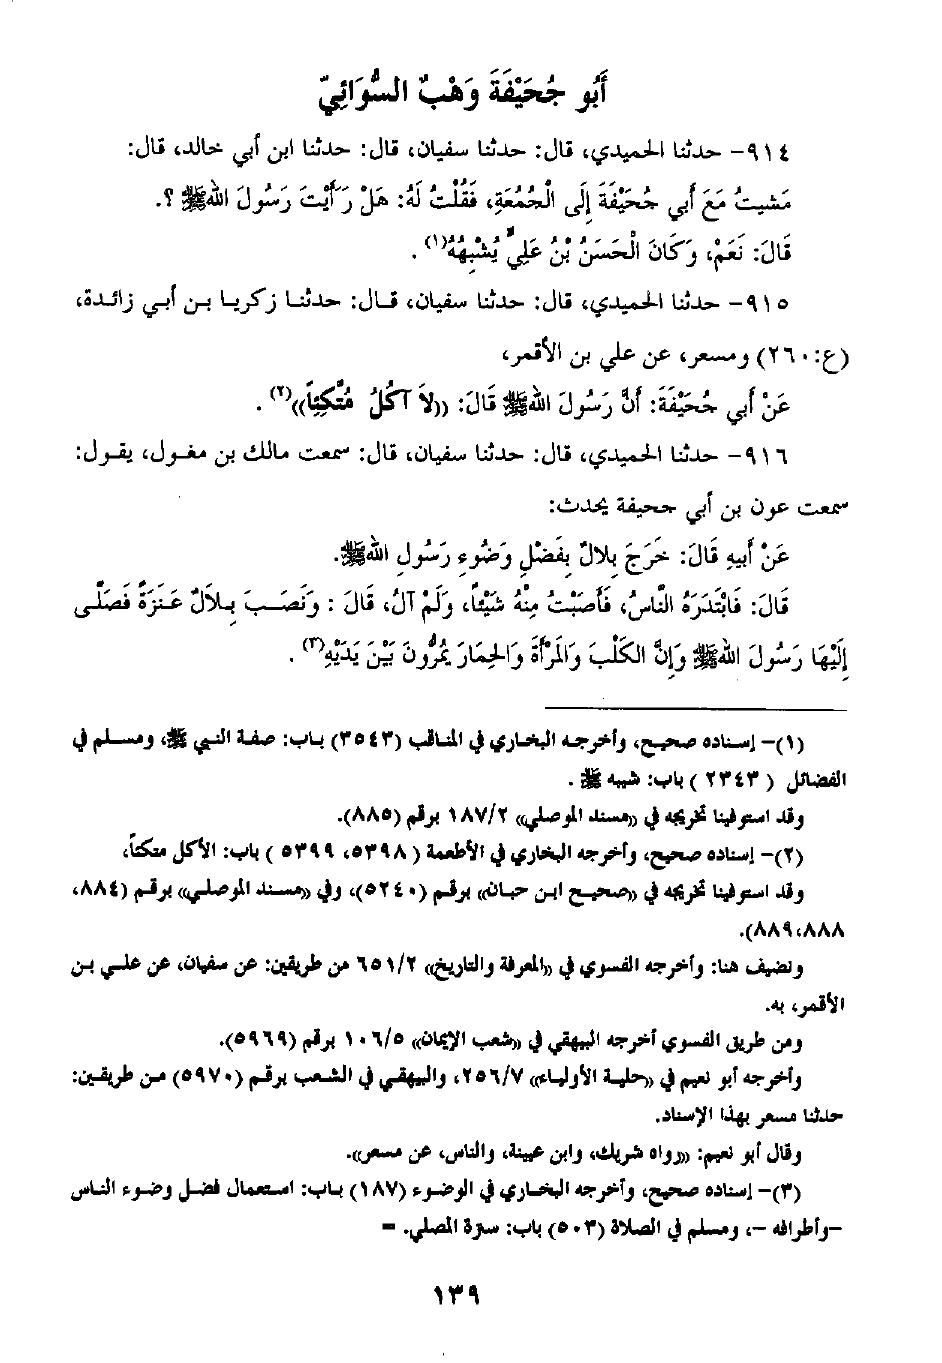 أَبُو جُحَيْفَةَ وَهْبٌ السُّوَائِيّ
٩١٤- حدثنا الحميدي، قال: حدثنا سفيان، قال: حدثنا ابن أبي خالد، قال:
مَشيتُ مَعَ أَبي جُحَيْفَةَ إِلَى الْجُمُعَةِ، فَقُلْتُ لَهُ: هَلْ رَأَيْتَ رَسُولَ اللهﷺ ؟.
قَالَ: نَعَمْ، وَكَانَ الْحَسَنُ بْنُ عَلِيٍّ يُشْبِهُهُ(١) .
٩١٥- حدثنا الحميدي، قال: حدثنا سفيان، قـال: حدثنـا زكريـا بـن أبـي زائـدة،
(ع:٢٦٠) ومسعر، عن علي بن الأقمر،
عَنْ أَبي جُحَيْفَةَ: أَنَّ رَسُولَ اللهﷺ قَالَ: ((لاَ آكُلُ مُتَّكِئاً))(٢) .
٩١٦- حدثنا الحميدي، قال: حدثنا سفيان، قال: سمعت مالك بن مغول، يقـول:
سمعت عون بن أبي جحيفة يحدث:
عَنْ أَبيهِ قَالَ: خَرَجَ بِلالٌ بِفَضْلِ وَضُوءِ رَسُولِ اللهﷺ.
قَالَ: فَابْتَدَرَهُ النَّاسُ، فَأَصَبْتُ مِنْهُ شَيْئاً، وَلَمْ آلُ، قَالَ : وَنَصَـبَ بِـلالٌ عَـنَزَةً فَصَلَّـى
إِلَيْهَا رَسُولَ اللهﷺ وَإِنَّ الكَلْبَ وَالمَرْأَةَ وَالحِمَارَ يَمُرُّونَ بَيْنَ يَدَيْهِ(٣) .
(١)- إسناده صحيح، وأخرجـه البخـاري في المناقب (٣٥٤٣) بـاب: صفـة النبي ﷺ، ومسـلم في
الفضائل ( ٢٣٤٣ ) باب: شيبه ﷺ .
وقد استوفينا تخريجه في ((مسند الموصلي)) ١٨٧/٢ برقم (٨٨٥).
(٢)- إسناده صحيح، وأخرجه البخاري في الأطعمة ( ٥٣٩٨، ٥٣٩٩ ) باب: الأكل متكئاً،
وقد استوفينا تخريجه في ((صحيح ابـن حبان)) برقـم (٥٢٤٠)، وفي ((مسـند الموصلي)) برقـم (٨٨٤،
٨٨٨،٨٨٩).
ونضيف هنا: وأخرجه الفسوي في ((المعرفة والتاريخ)) ٦٥١/٢ من طريقين: عن سفيان، عن علـي بـن
الأقمر، به.
ومن طريق الفسوي أخرجه البيهقي في ((شعب الإيمان)) ١٠٦/٥ برقم (٥٩٦٩).
وأخرجه أبو نعيم في ((حلية الأولياء)) ٢٥٦/٧، والبيهقي في الشعب برقـم (٥٩٧٠) مـن طريقين:
حدثنا مسعر بهذا الإسناد.
وقال أبو نعيم: ((رواه شريك، وابن عيينة، والناس، عن مسعر)).
(٣)- إسناده صحيح، وأخرجه البخـاري في الوضـوء (١٨٧) بـاب: استعمال فضـل وضـوء الناس
-وأطرافه -، ومسلم في الصلاة (٥٠٣) باب: سترة المصلي. =
١٣٩